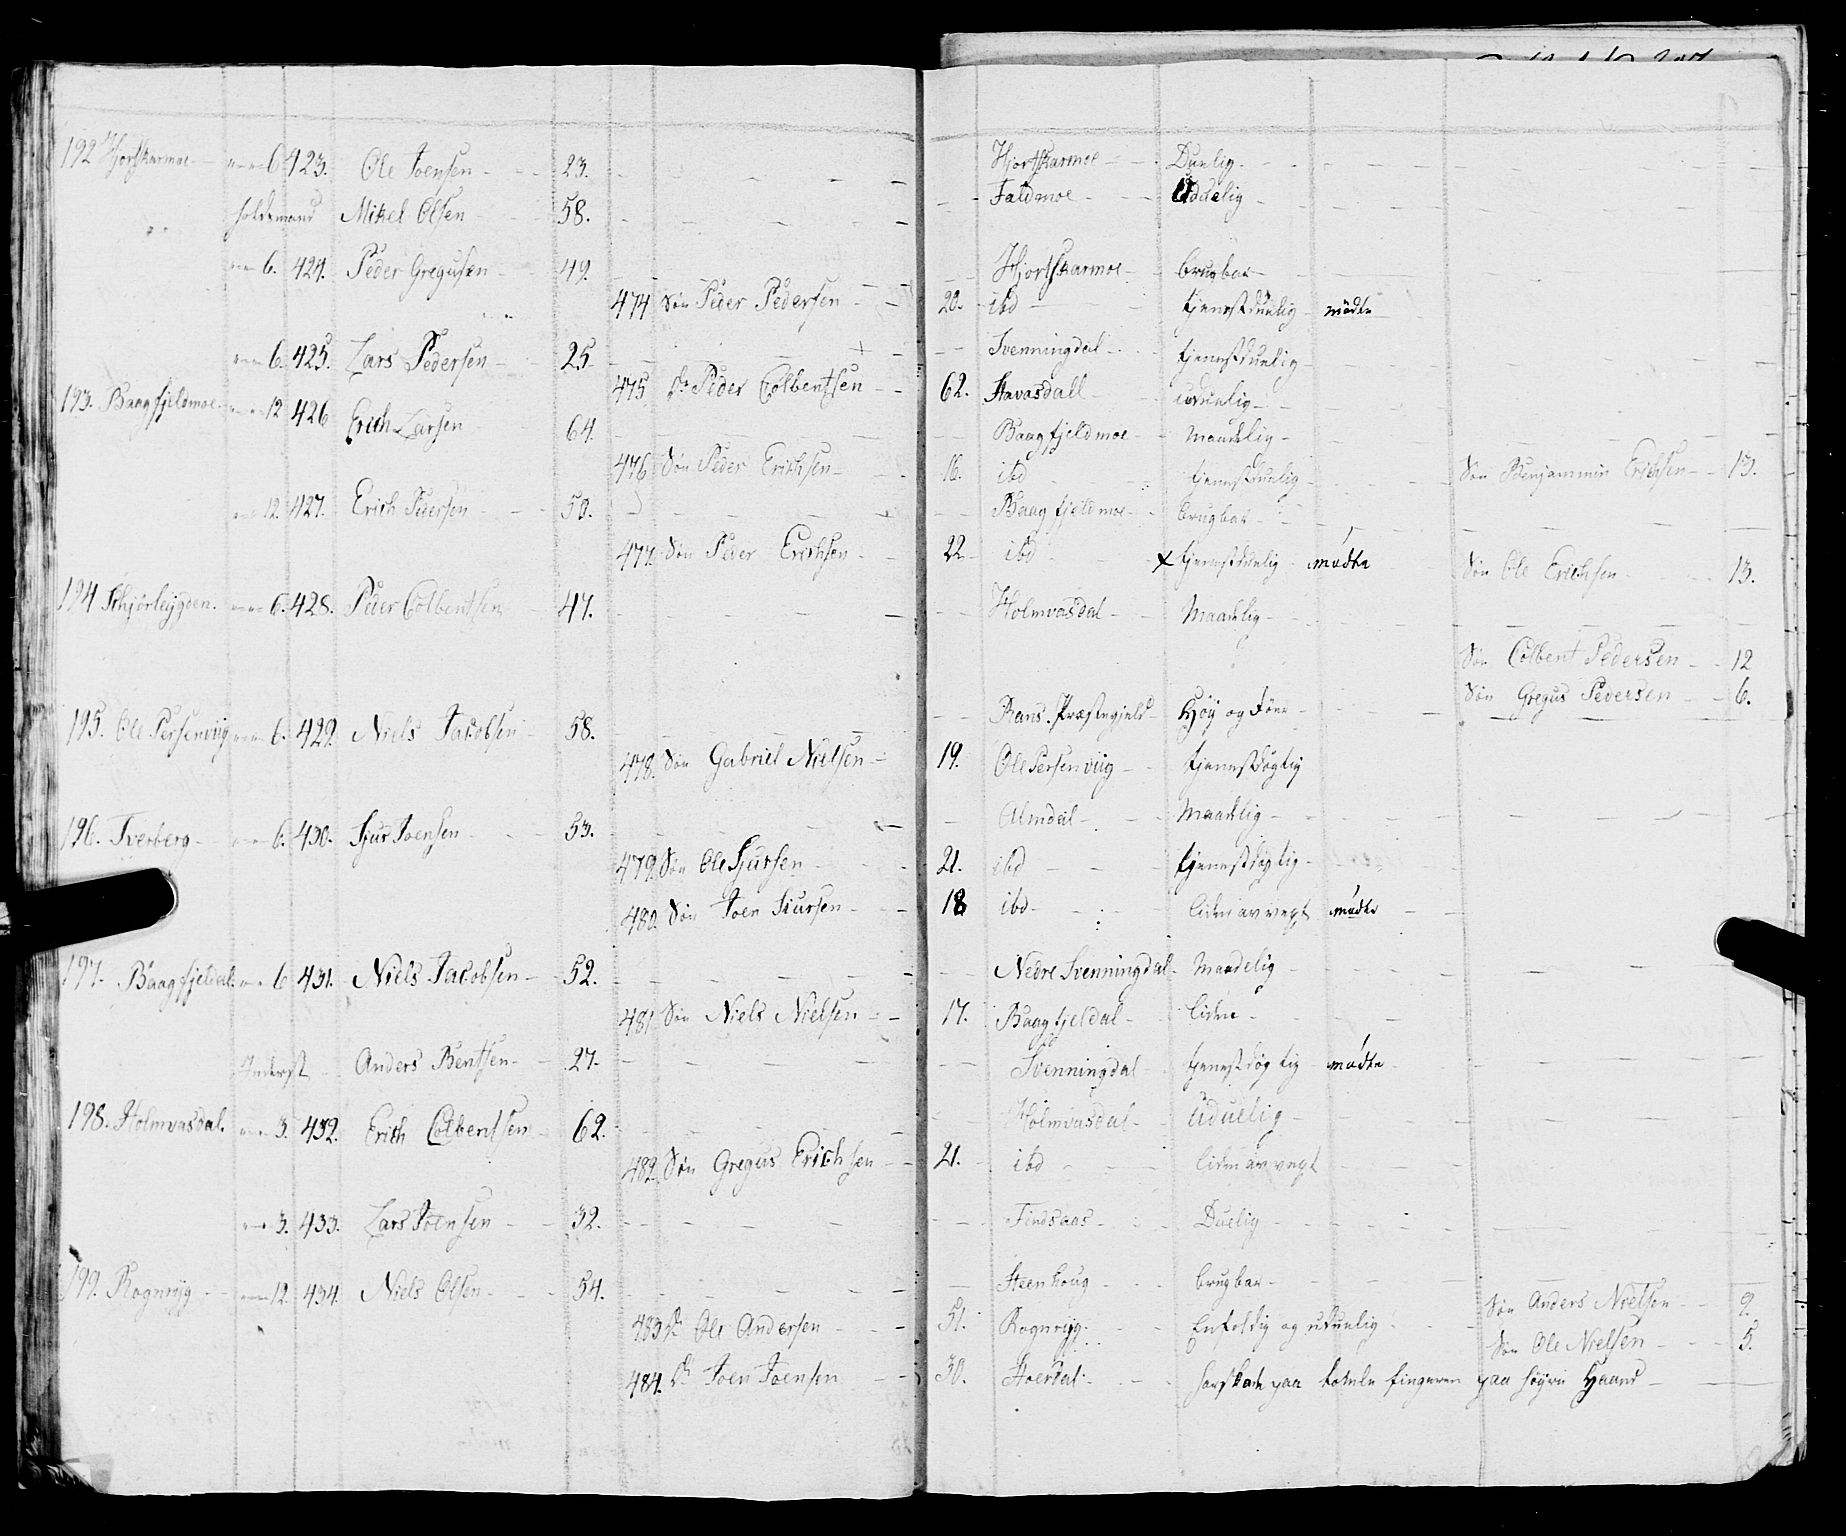 192 Hjortskarmoe 6 423. Ole Joensen 23. Hjortskarmoe Duelig
holdsmand Mikel Olsen 58. Faldmoe Uduelig
6. 424. Peder Gregusen 49. Hjortskarmoe brugbar
474 Søn Peder Pedersen 20. ibd tjenestduelig mødte
6. 425. Lars Pedersen 25 Svenningdal tjenestduelig
475 Peder Colbentsen 62. Stavasdall uduelig
193. Baagfjeldmoe 12 426 Erich Larsen 64. Baagfjeldmoe Maadelig
476 Søn Peder Erichsen 16. ibd tjenestduelig Søn Benjammin Erichsen 13.
12. 427. Erich Pedersen 50. Baagfjeldmoe brugbar
477. Søn Peder Erichsen 22 ibd x tjenestduelig mødte Søn Ole Erichsen 13.
194 6. 428. Peder Colbentsen 47. Holmvasdal Maadelig
Søn Colbent Pedersen 12
Søn Gregus Pedersen 6.
195. Ole Persenviig 6. 429. Niels Jacobsen 58. Rans. Præstegjeld Høy og
478. Søn Gabriel Nielsen 19. Ole Persenviig tjenestdøgtig
196. Tverberg 6. 430. Sjur Joensen 53. Almdal Maadelig
479 Søn Ole Sjursen 21. ibd tjenestdøgtig
480. Søn Joen Siursen 18 ibd liden av vegt mødte
197. Baagfjeldal 6 431. Niels Jacobsen 52. Nedre Svenningdal Maadelig
481 Søn Niels Nielsen 17. Baagfjeldal liden
Inderst Anders Bentsen 27. Svenningdal tjenestdøgtig mødte
198. Holmvasdal. 3. 432. Erich Colbentsen 62. Holmvasdal Uduelig
482 Søn Gregus Erichsen 21. ibd liden av vegt
3. 433. Lars Joensen 32. Findsaas Duelig
199. Rognryg 12 434 Niels Olsen 54. Steenhoug brugbar Søn Anders Nielsen 9.
483 Ole Andersen 51. Rognryg Enfoldig og uduelig Søn Ole Nielsen 5.
484. Joen Joensen 30. har skade paa fingeren paa høyre Haand